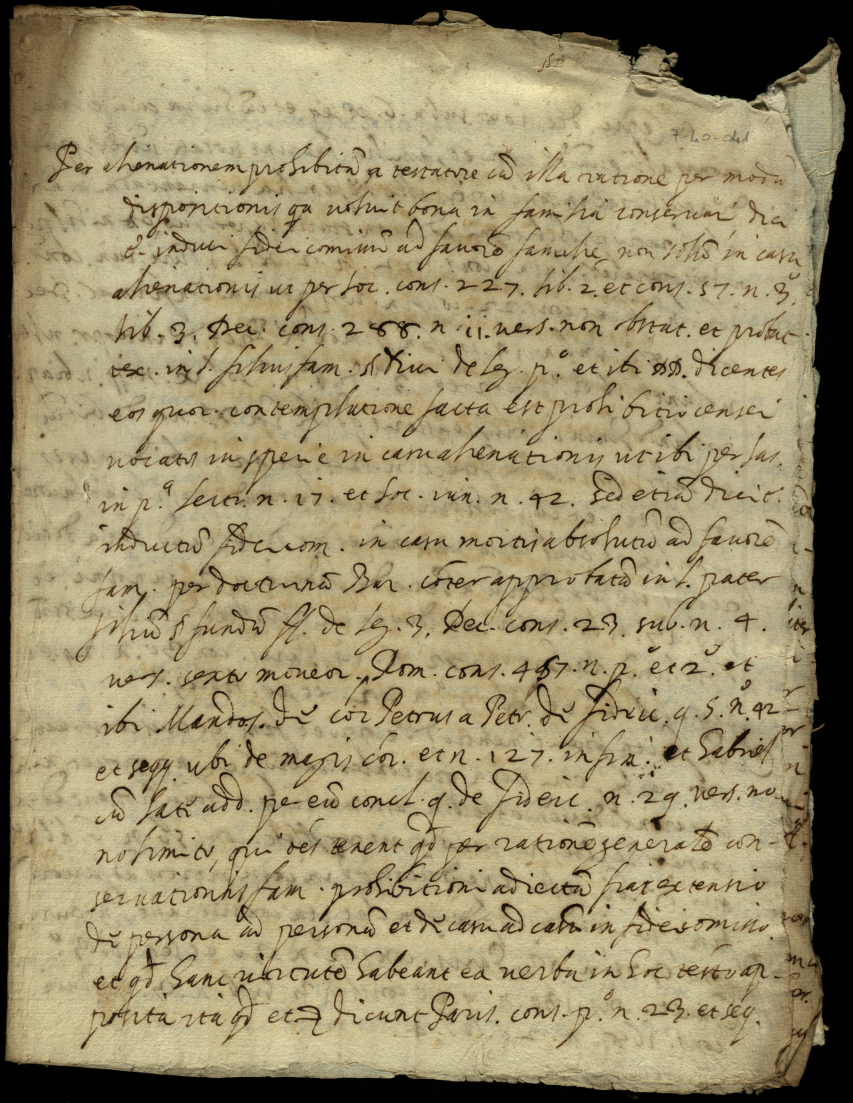 Per alienationem prohibitā a testatore cū illa ratione per modū
dispositionis qa voluit bona in familia conservari dici
induci fideicomiss ad favorē familie, non solū in casu
alienationis ut per soc. cons. 227. lib. 2. et cons. 57. n. 3.
lib. 3. Dec. cons. 288. n. 11. vers. non obstat. et probat
tex. in l. filiusfam. § Divi de leg. pº. et ibi DD. dicentes
eos quor. contemplatione facta est prohibitio censeri
vocatos in specie in casu alienationis ut ibi per Jas.
in pª lect. n. 17. et soc. iun. n. 42. sed etiā dicit.
inductū fideicom. in casu mortis absolutū ad favorē
fam. per doctrinā Bar. cōter approbatā in l. pater
filiū § fundū ff. de leg. 3. Dec. cons. 23. sub. n. 4.
vers. sexto moveor. Rom. cons. 467. n. pº et 2º. et
ibi Mandos. Petrus a Petr. de fideic. q. 5. nº. 42
et seqq. ubi de magis cōi. et n. 127. in fin. et Gabriel
cū late add. per eū concl. 9. de fideic. n. 29. vers. no
qui oēs tenent qd per rationē generalē con-
servationis fam. prohibitioni adiectā fiat extensio
de persona ad personā et de casu ad casū in fideicomisso.
et qd hanc virtutē habeant ea verba in hoc testo ap-
posita ita qd et dicunt Paris. cons. pº. n. 23. et seq.